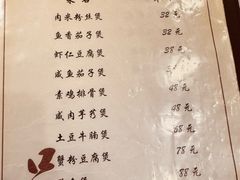 菜名
肉米粉丝煲 32元
鱼香茄子煲 32元
虾仁豆腐煲 38元
咸鱼茄子煲 元
素鸡排骨煲 48元
咸肉芋艿煲 48元
土豆牛腩煲 68元
蟹粉豆腐煲 78元
煲 88元